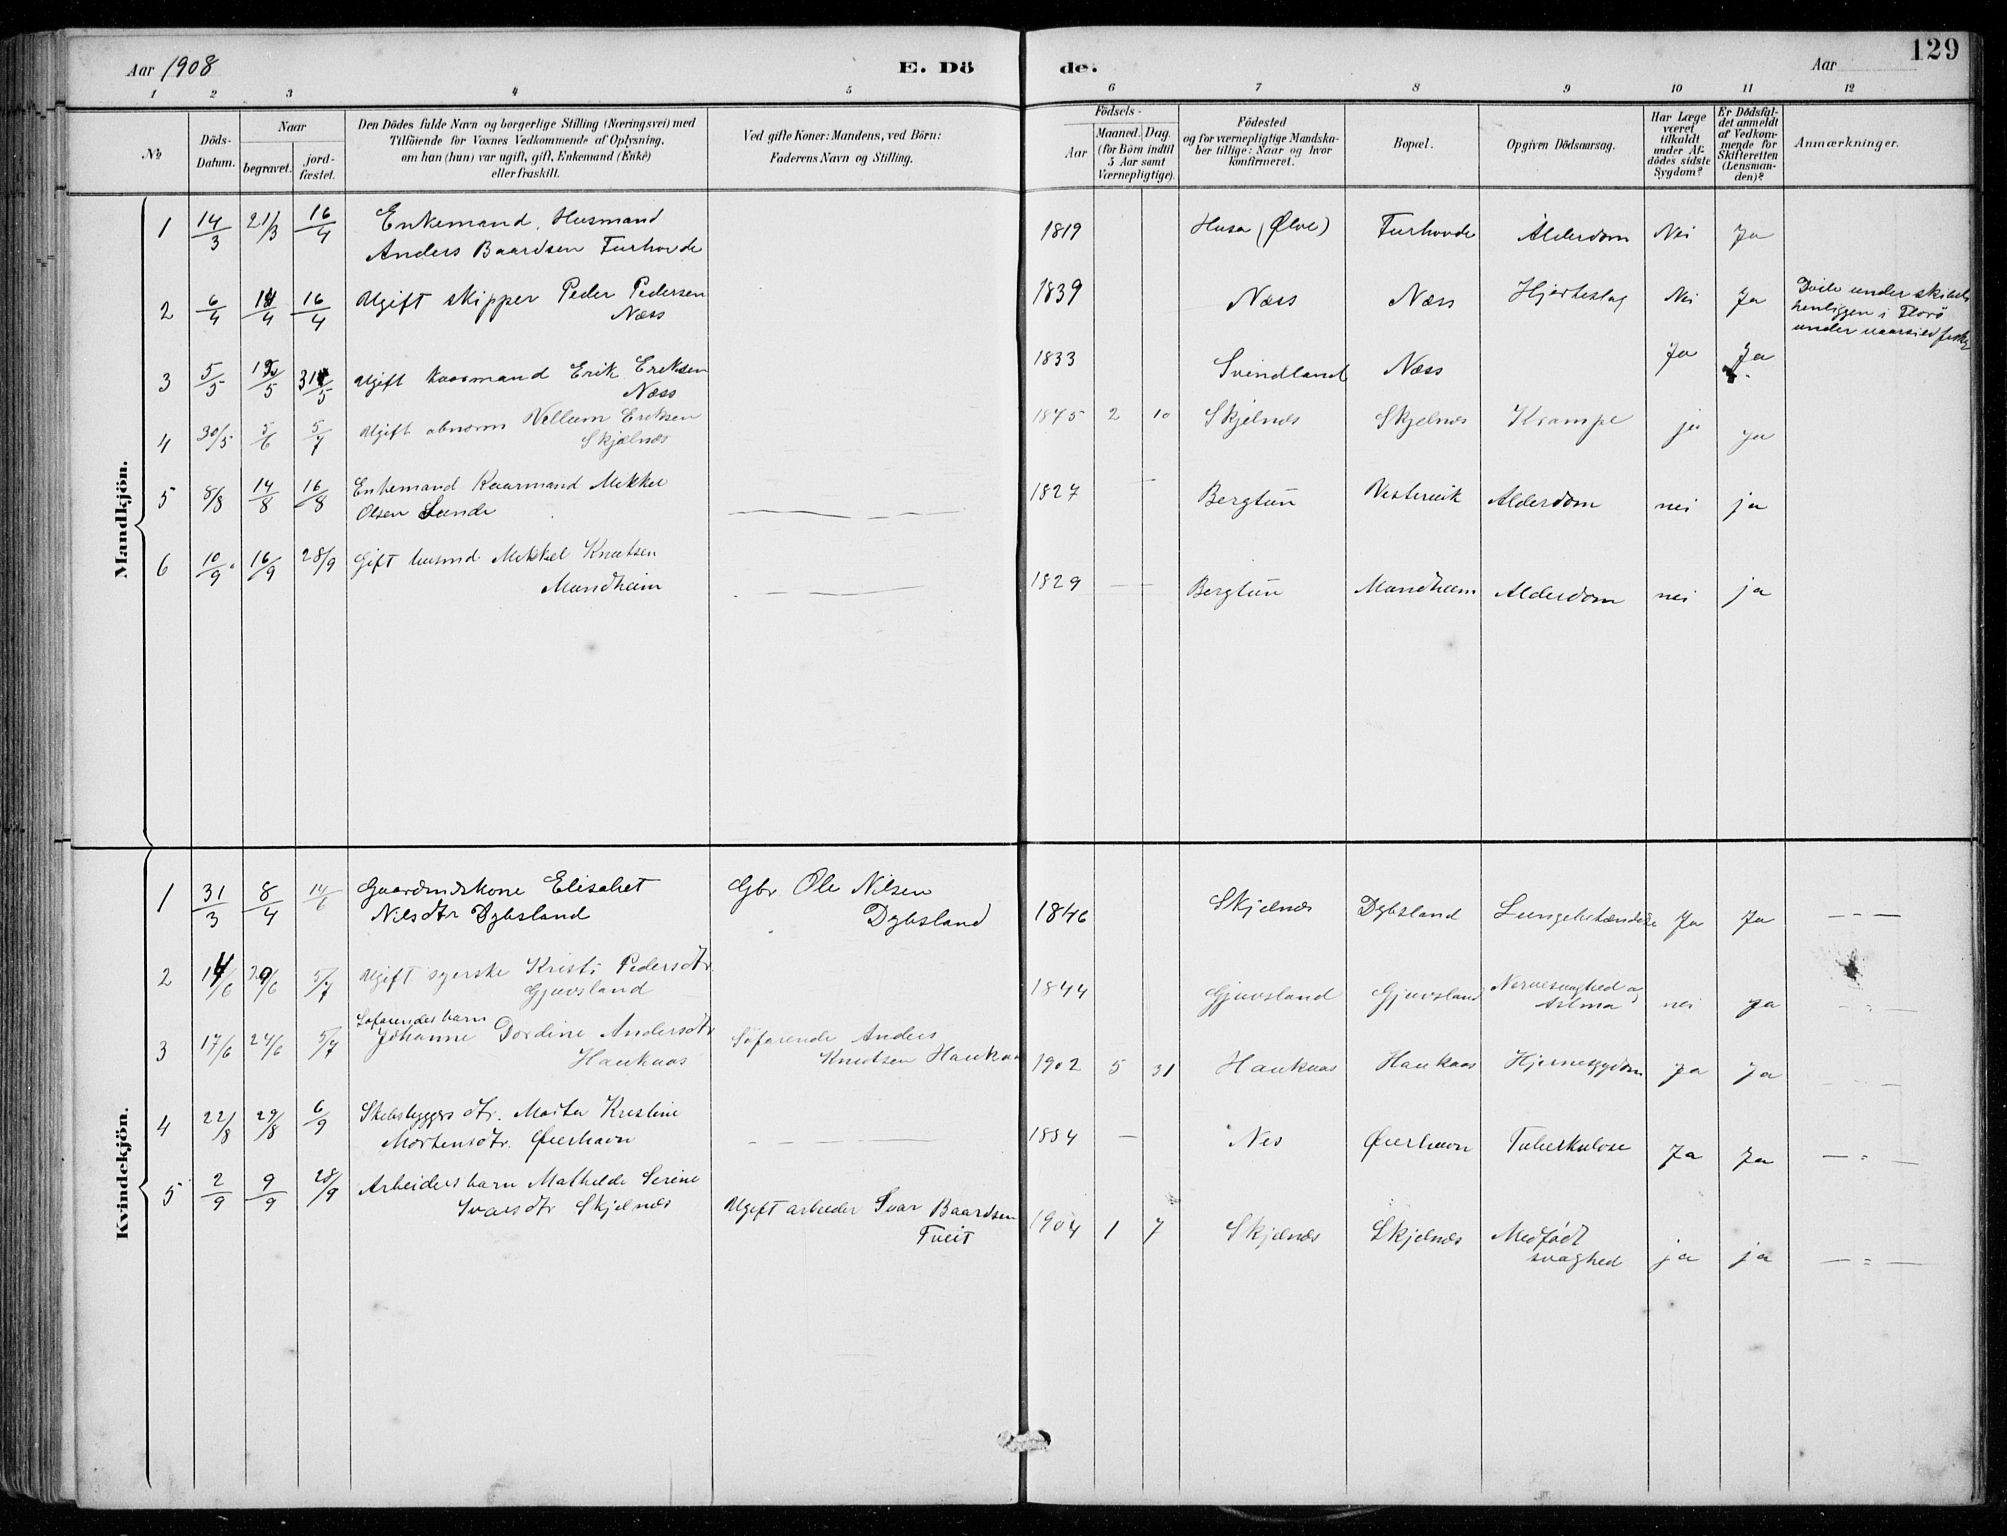 Aar 1908
E. Dö
de.
Aar
129
1 2 3 4 5 6 7 8 9 10 11 12
No
Döds-
Datum.
Naar
begravet.
jord-
fæstet.
Den Dödes fulde Navn og borgerlige Stilling (Næringsvei) med
Tilföiende for Voxnes Vedkommende af Oplysning,
om han (hun) var ugift, gift, Enkemand (Enke)
eller fraskilt.
Ved gifte Koner: Mandens, ved Börn:
Faderens Navn og Stilling.
Födsels-
Aar
Maaned. Dag.
(for Börn indtil
5 Aar samt
Værnepligtige).
Födested
og for værnepligtige Mandska-
ber tillige: Naar og hvor
konfirmeret.
Bopæl.
Opgiven Dödsaarsag.
Har Læge
været
tilkaldt
under Af-
dödes sidste
Sygdom?
Er Dödsfal-
det anmeldt
af Vedkom-
mende for
Skifteretten
(Lensman-
den)?
Anmærkninger.
Mandkjön.
1 14/3 21/3 16/4 Enkemand, Husmand
Anders Baardsen Furhovde
1819 Husa (Ølve) Furhovde Alderdom Nei Ja
2 6/4 14/4 16/4 Ugift skipper Peder Pedersen
Næss
1839 Næss Næss Hjerteslag Nei Ja
under skibets
henliggen i Florø
under vaarsildfiske
3 5/5 /5 31/5 Ugift Kaarmand Erik Eriksen
Næss
1833 Svindland Næss Ja Ja
4 30/5 5/6 5/7 Ugift abnorm Villum Eriksen
Skjelnæs
1875 2 10 Skjelnæs Skjelnæs Krampe ja ja
5 8/8 14/8 16/8 Enkemand Kaarmand Mikkel
Olsen Lunde
1827 Bergtun Vestervik Alderdom nei ja
6 10/9 16/9 28/9 Gift husmd Mikkel Knutsen
Mundheim
1829 Bergtun Mundheim Alderdom nei ja
Kvindekjön.
1 31/3 8/4 14/6 Gaardmdskone Elisabet
Nilsdtr Dybsland
Gbr. Ole Nilsen
Dybsland
1846 Skjelnæs Dybsland Lungebetændelse Ja Ja
2 14/6 20/6 5/7 Ugift syerske Kristi Pedersdtr.
Gjuvsland
1844 Gjuvsland Gjuvsland Nervesvaghed og
Astma nei ja
3 17/6 24/6 5/7 Søfarendes barn
Johanne Dordine Andersdtr
Haukaas
Søfarende Anders
Knutsen Haukaas
1902 5 31 Haukaas Haukaas Hjernesygdom Ja Ja
4 22/8 29/8 6/9 Skibsbyggers dtr. Marta Kristine
Mortensdtr. Øierhavn
1884 Nes Øierhavn Tuberkulose Ja Ja
5 2/9 9/9 28/9 Arbeidersbarn Mathilde Serine
Ivarsdtr Skjelnæs
Ugift arbeider Ivar Baardsen
Tveit
1904 1 7 Skjelnæs Skjelnæs Medfødt
svaghed ja ja